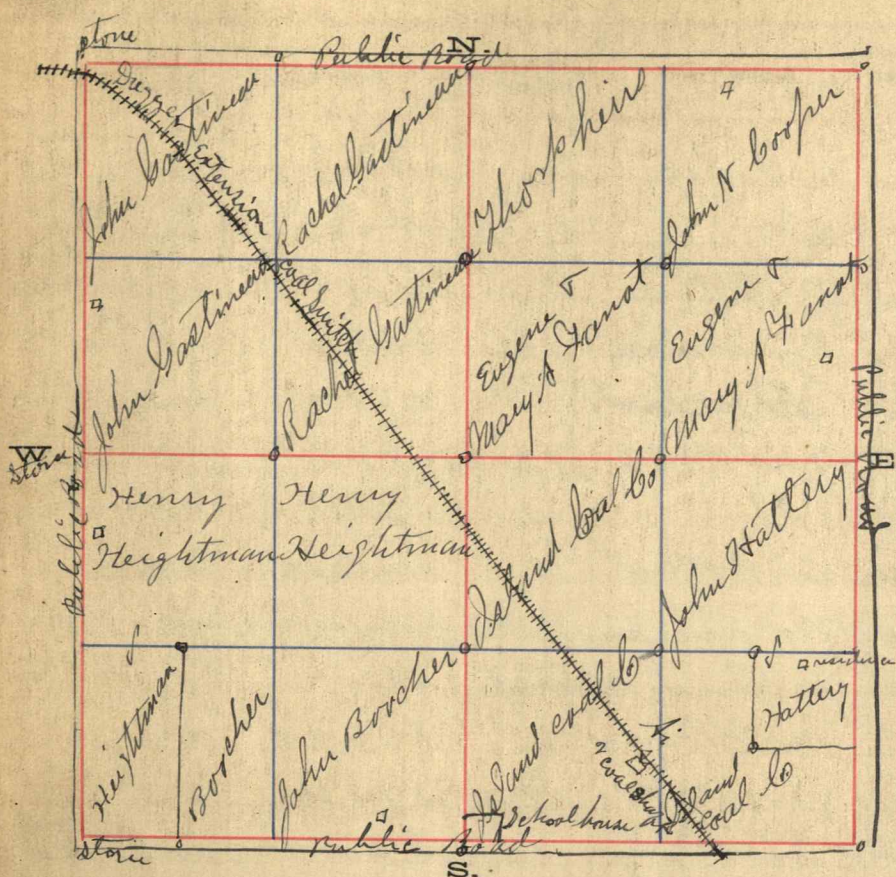 stone
N.
Public Road
Dugger Extension
coal Switch
John Gastineau
Rachel Gastineau
John N Cooper
John Gastineau
Rachel Gastineau
Eugene &
Mary A
Eugene &
Mary A
W
stone
Public Road
Public Road
E
Henry
Heightman
Henry
Heightman
Island Coal Co
John Hattery
Heightman
Boocher
John Boocher
Island coal Co
residence
Hattery
2
coal
Island
coal Co
School house
stone
Public Road
S.